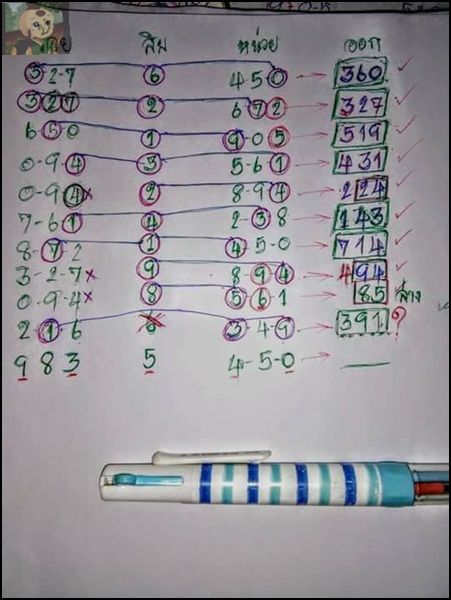 สิบ หน่วย ออก
3-2-7 6 4-5-0 → 360 ✓
3 2 7 2 6 7 2 → 327 ✓
6 5 0 1 9 0 5 → 519 ✓
0-9-4 3 5-6-1 → 431 ✓
0-9-4x 2 8-9-4 → 224 ✓
7-6-1 4 2-3 8 → 143 ✓
8-7 2 1 4 5-0 → 714 ✓
3-2-7x 9 8-9-4 → 494 ✓
0-9-4x 8 5 6 1 → 85 ล่าง
2 1 6 3-4-9 → 391 ?
9 8 3 5 4-5-0 →